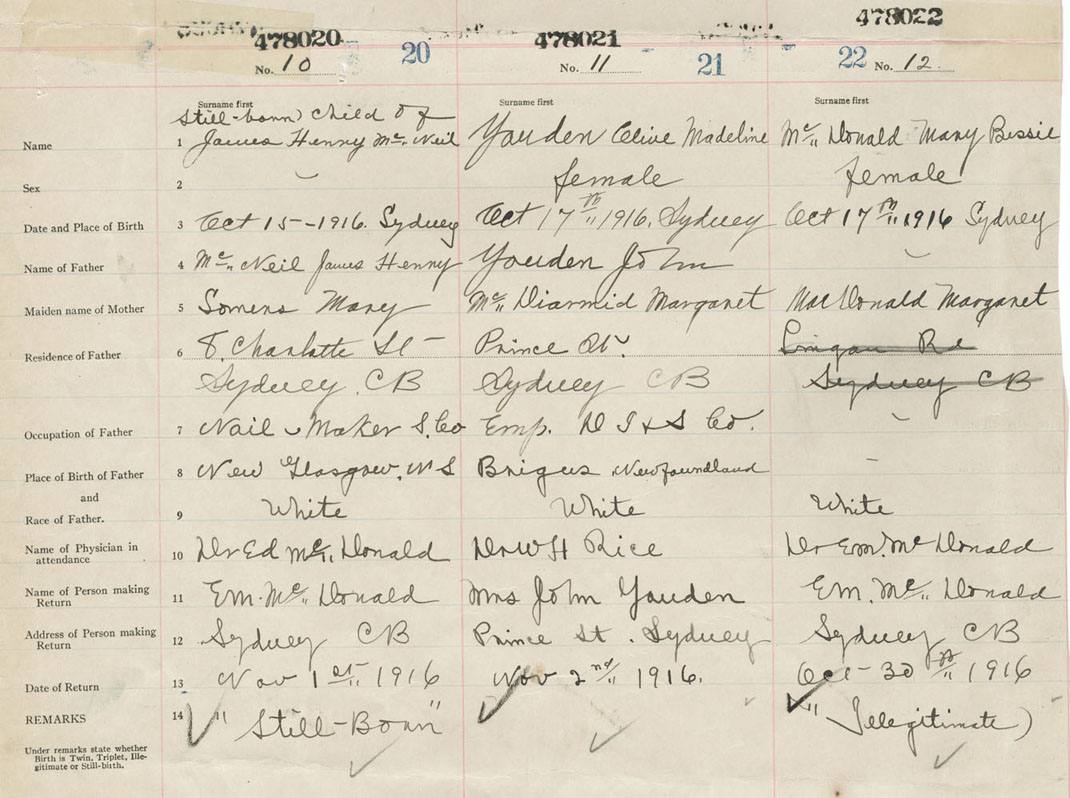 478020 478021 478022
No. 10 20 No. 11 21 22 No. 12
Surname first Surname first Surname first
Still-born child of
Name 1 James Henry Mc Neil Youden Olive Madeline Mc Donald Mary Bessie
Sex 2 female female
Date and Place of Birth 3 Oct 15-1916. Sydney Oct 17th 1916, Sydney Oct 17th 1916 Sydney
Name of Father 4 Mc Neil James Henry Youden John
Maiden name of Mother 5 Somers Mary Mc Diarmid Margaret Mac Donald Margaret
Residence of Father 6 8. Charlotte St - Prince St. Lingan Rd
Sydney CB Sydney CB Sydney CB
Occupation of Father 7 Nail - Maker S. Co Emp. D I & S Co.
Place of Birth of Father 8 New Glasgow, N S Brigus Newfoundland -
and
Race of Father. 9 White White White
Name of Physician in attendance 10 Dr Ed Mc Donald Dr W H Rice Dr Em. Mc Donald
Name of Person making Return 11 Em. Mc Donald Mrs John Youden Em. Mc Donald
Address of Person making Return 12 Sydney CB Prince St. Sydney Sydney CB
Date of Return 13 Nov 1st 1916 Nov 2nd 1916. Oct 30th 1916
REMARKS 14 "Still-Born" "Illegitimate)
Under remarks state whether
Birth is Twin, Triplet, Ille-
gitimate or Still-birth.